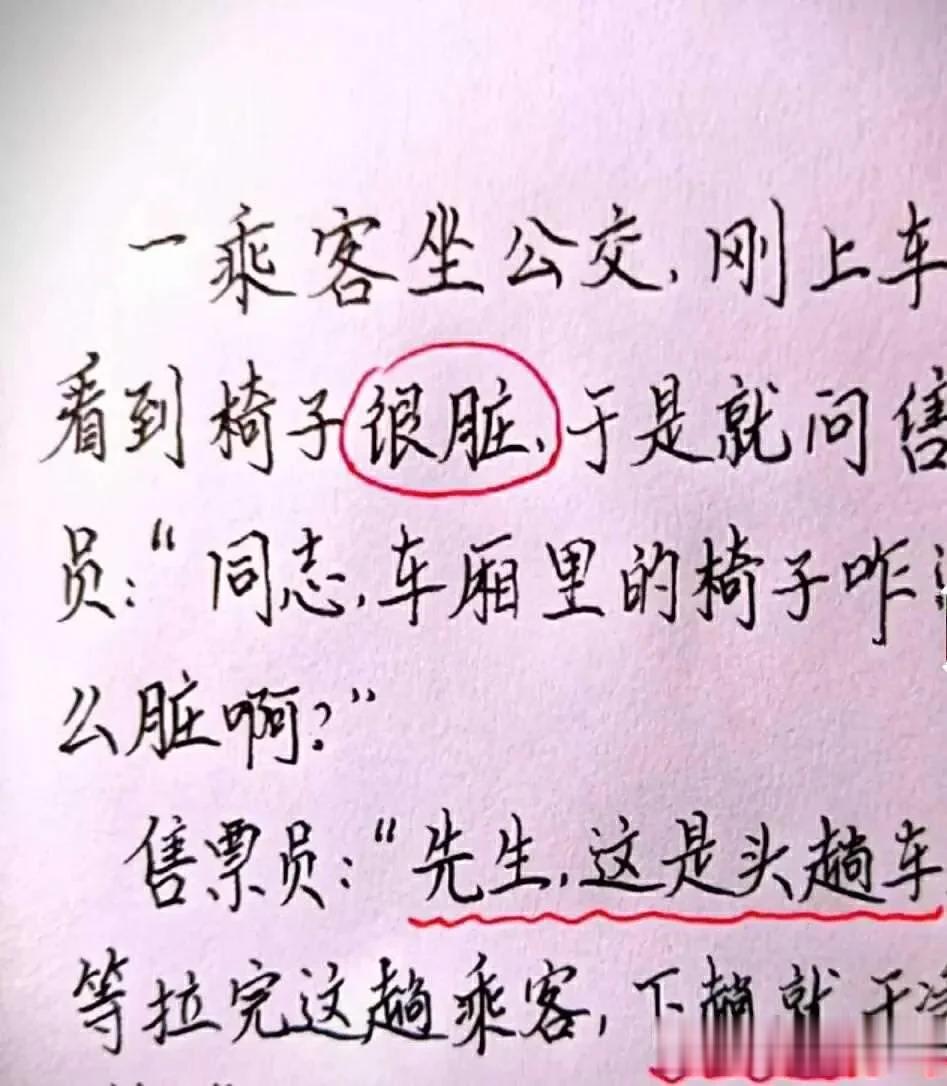 一乘客坐公交,刚上车
看到椅子很脏,于是就问售
员:“同志,车厢里的椅子咋
么脏啊?”
售票员:“先生,这是头趟车
等拉完这趟乘客,下趟就干净